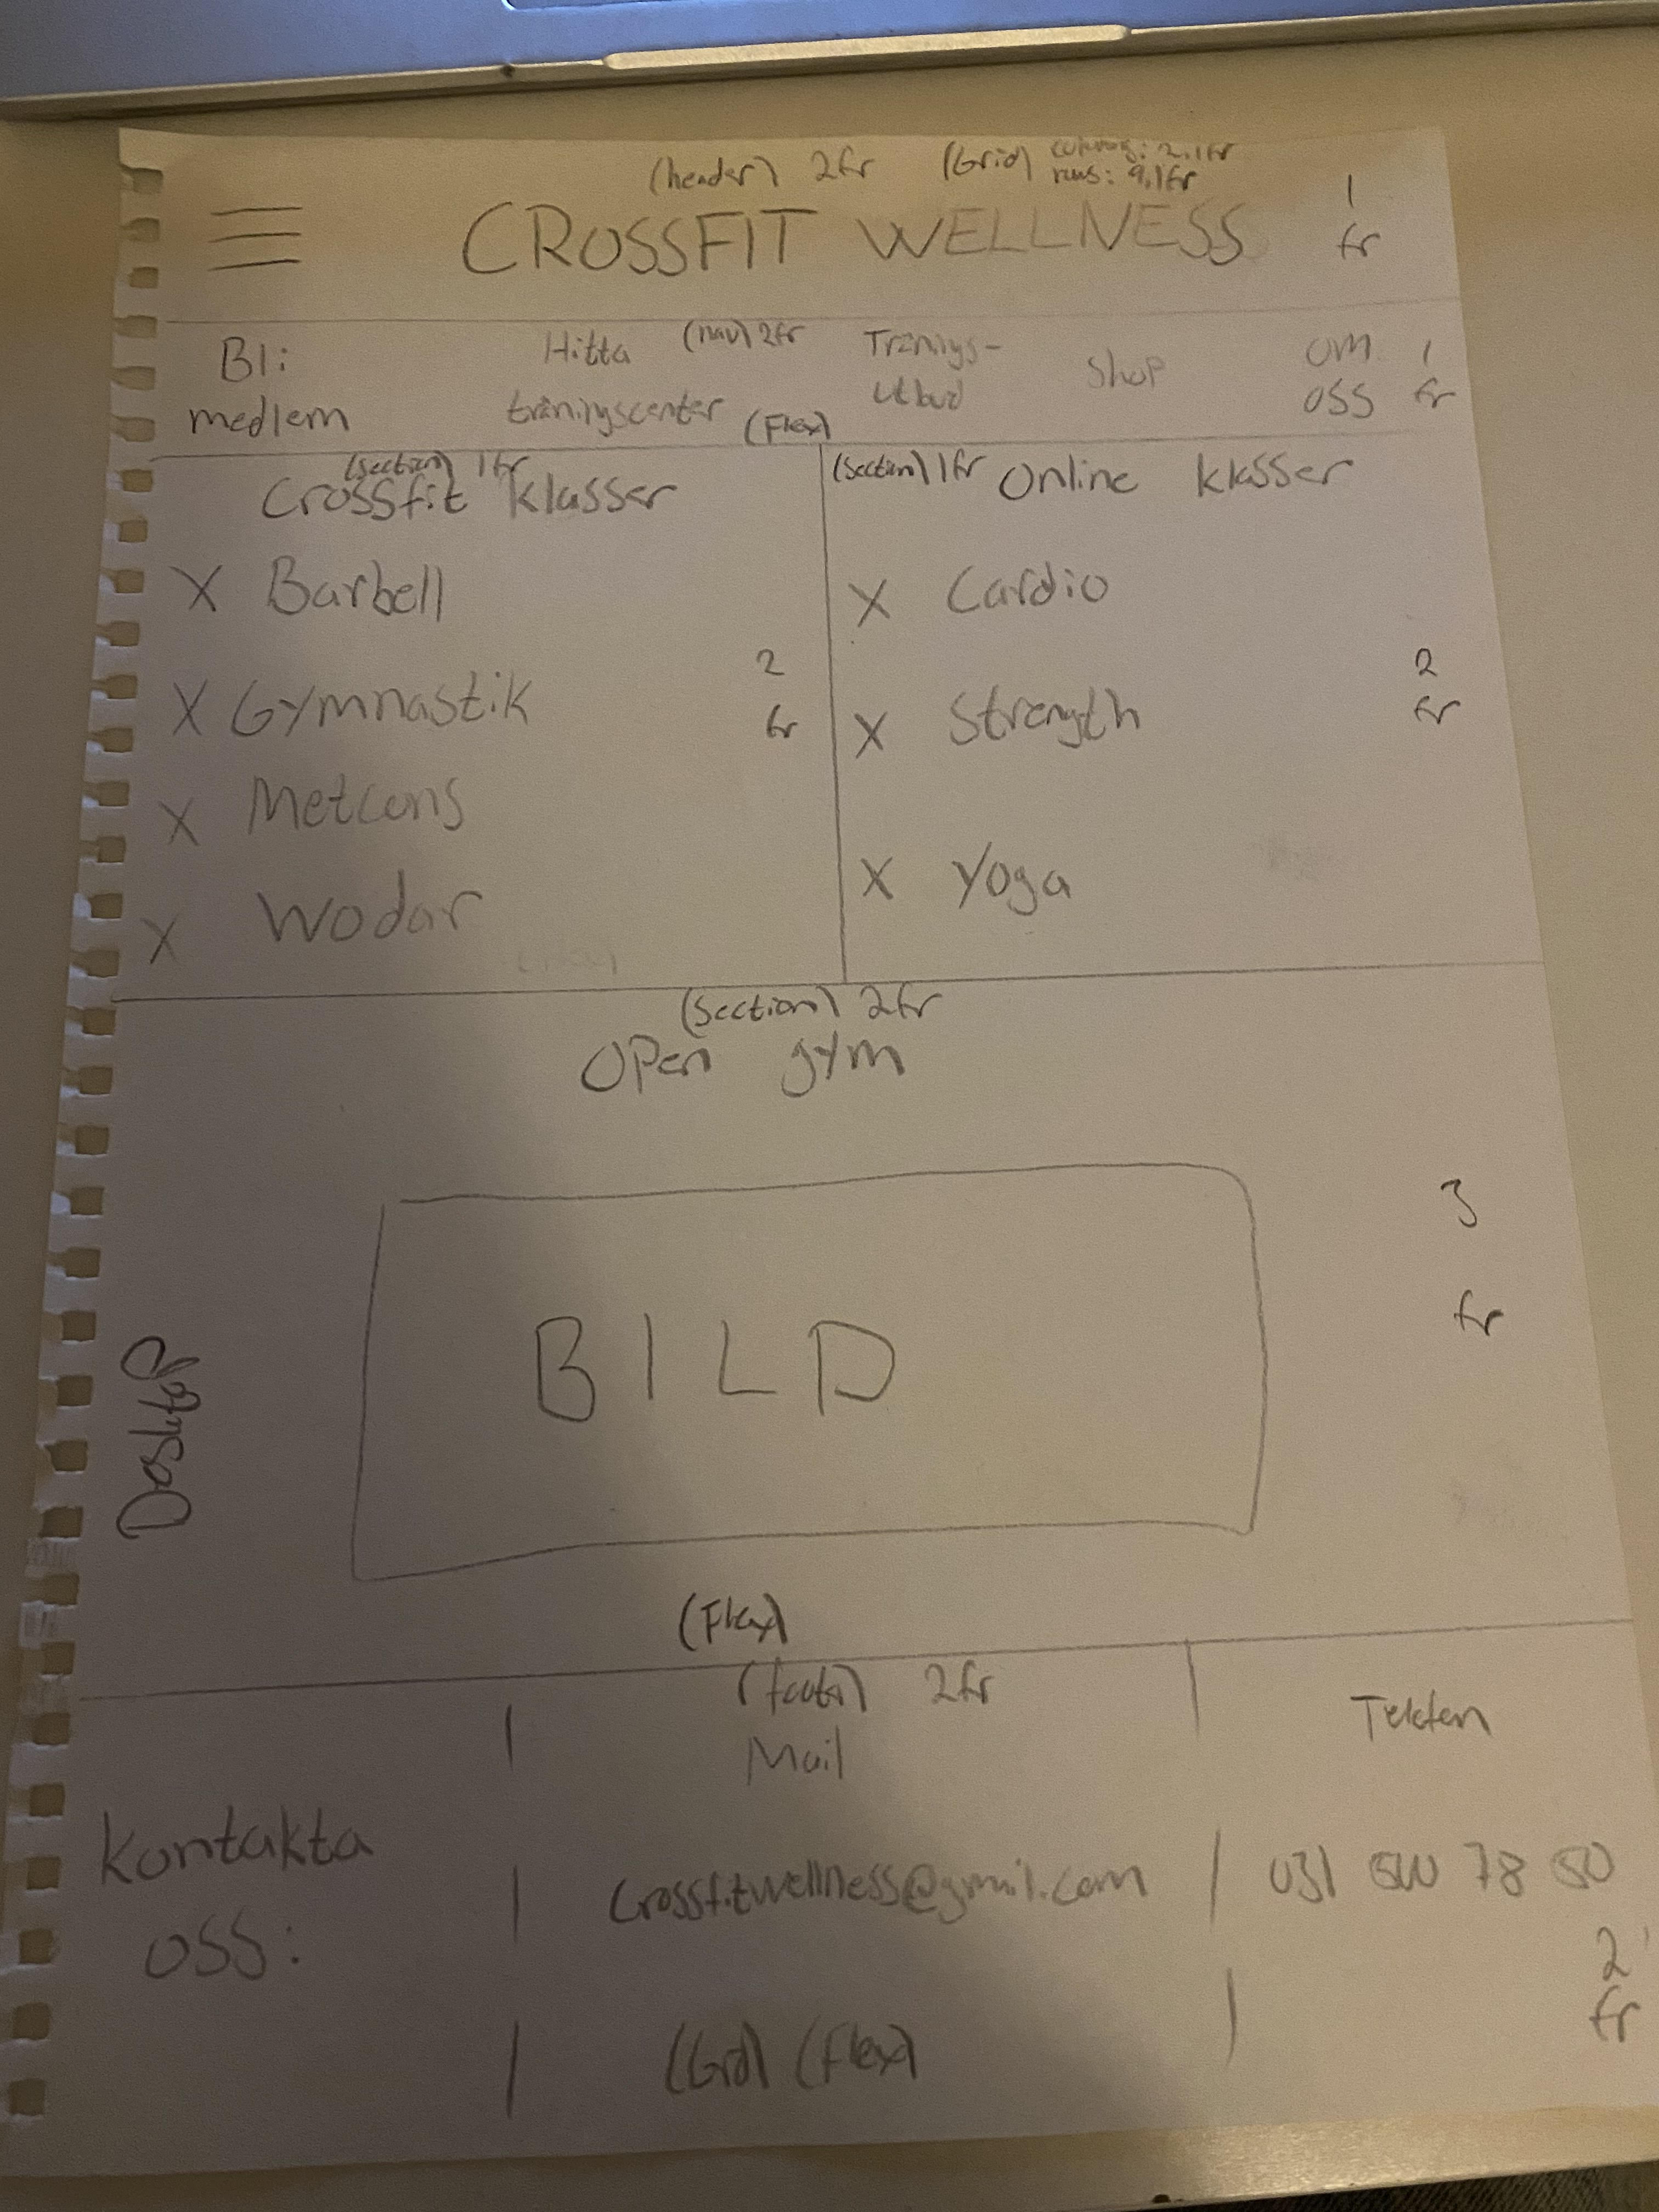 (header) 2fr (Grid) columns: 2,1fr
rows: 9,1fr
CROSSFIT WELLNESS 1 fr
Bli medlem
Hitta träningscenter
(nav) 2fr
(Flex)
Tränings-
utbud
Shop
OM OSS
1 fr
(Section) 1fr
Crossfit klasser
X Barbell
X Gymnastik
X Metcons
X Wodar
2 fr
(Section) 1fr Online klasser
X Cardio
X Strength
X Yoga
2 fr
(Section) 2fr
Open gym
BILD
3 fr
Desktop
(Flex)
(footer) 2fr
Kontakta
oss:
Mail
crossfitwellness@gmail.com
Telefon
031 78 50
(Grid) (Flex)
2 fr